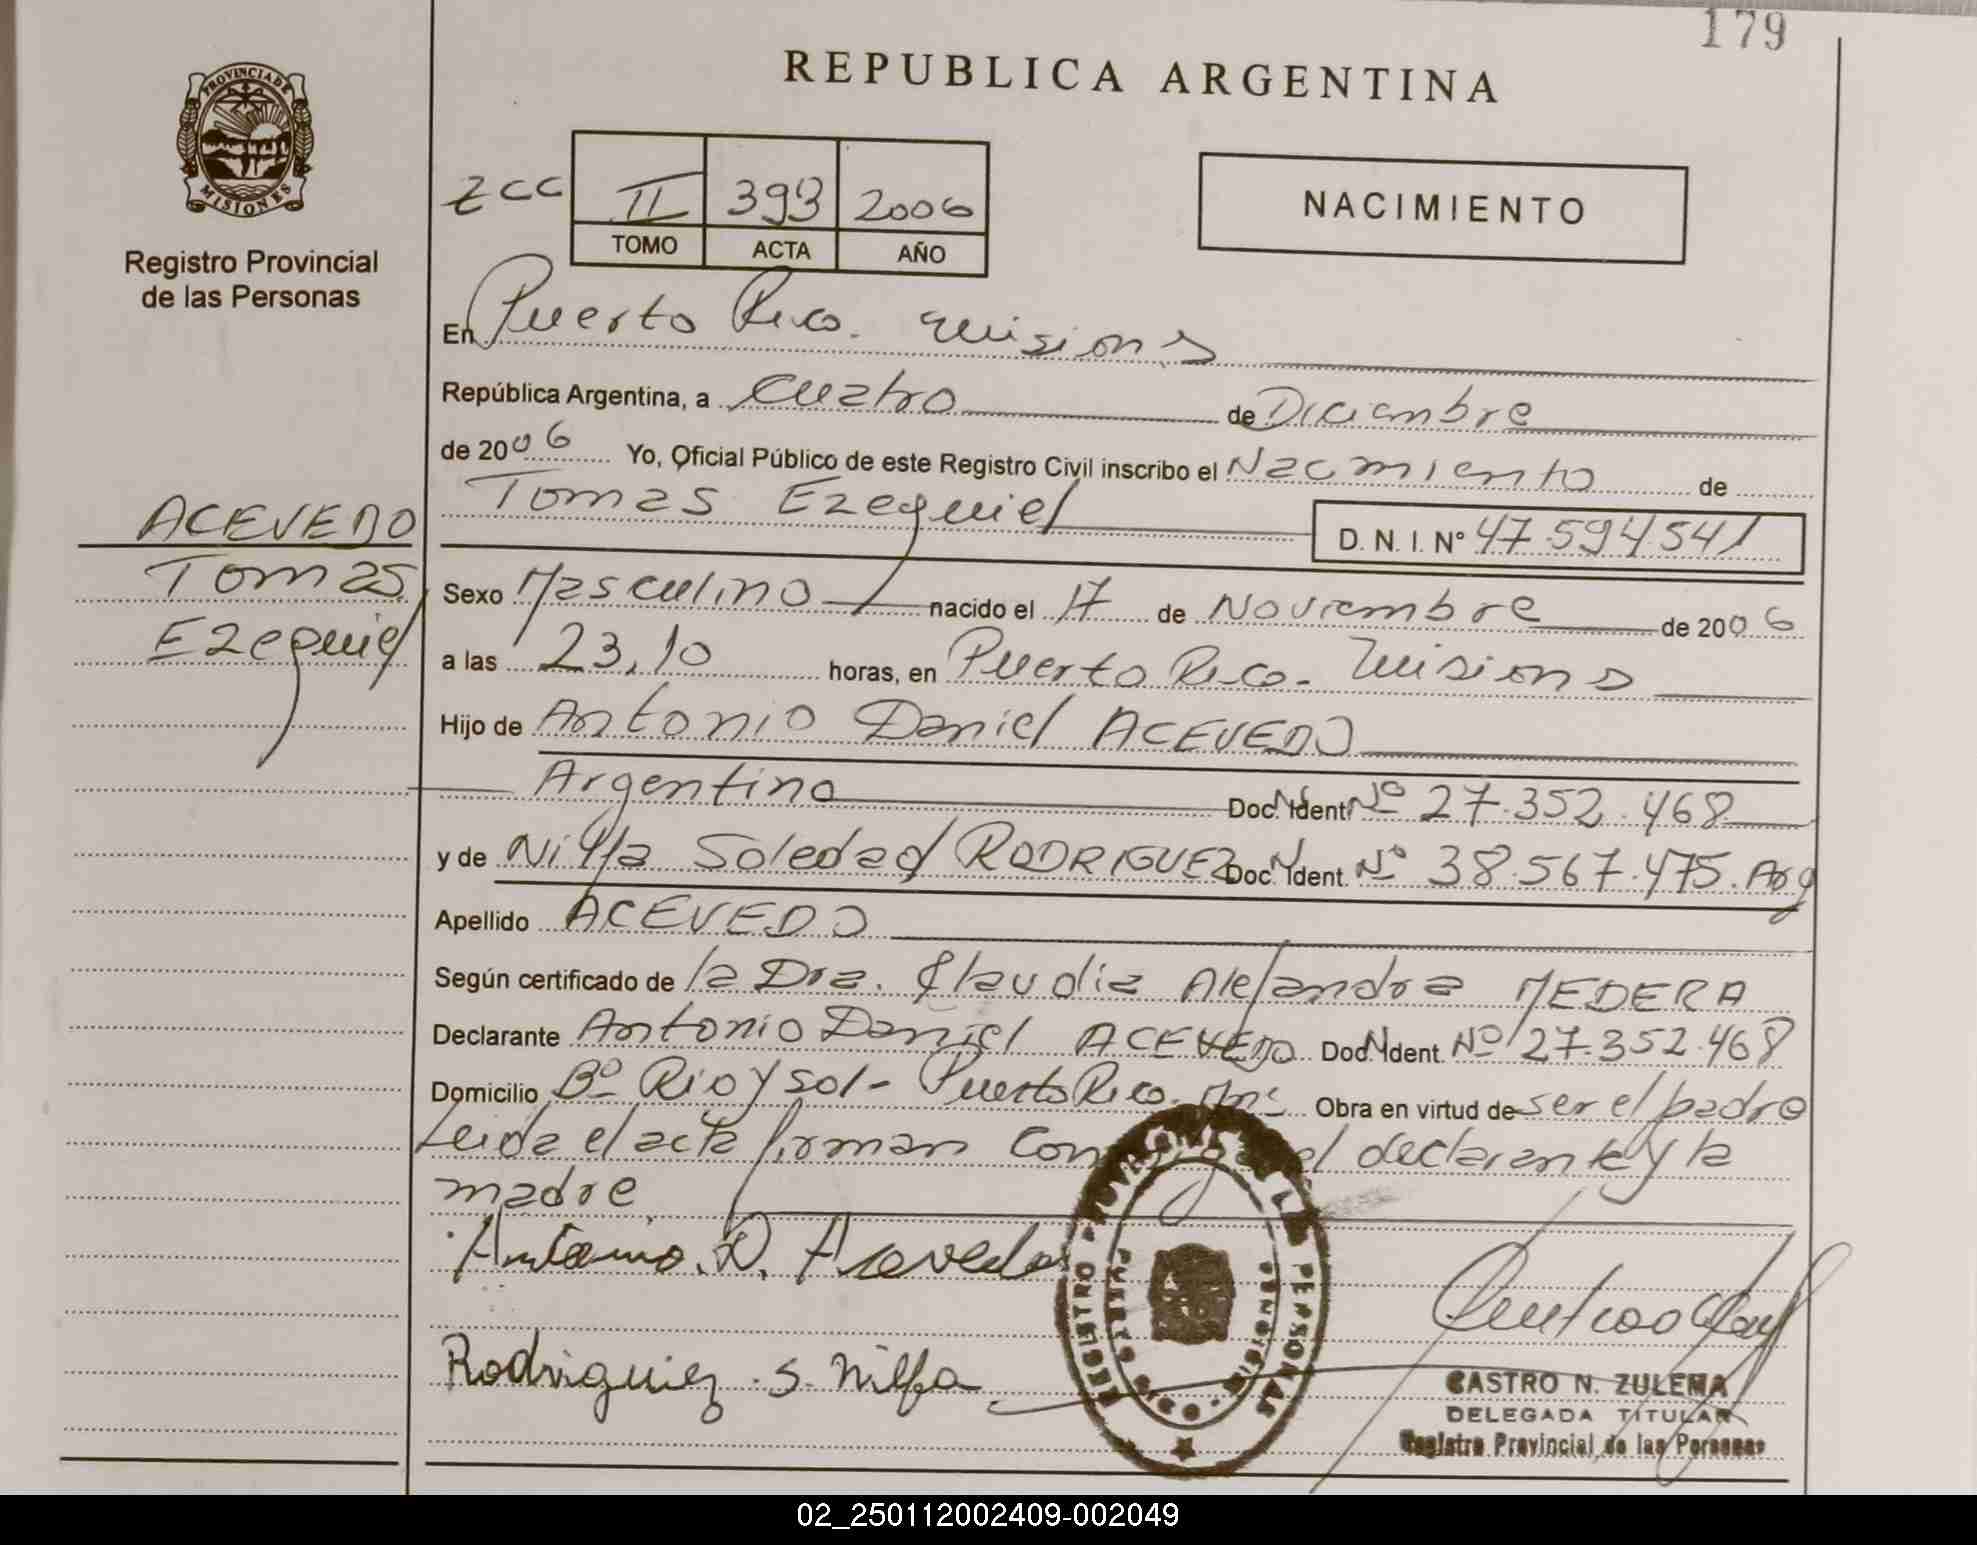 179
REPUBLICA ARGENTINA
PROVINCIA DE MISIONES
Registro Provincial
de las Personas
II 393 2006
TOMO ACTA AÑO
NACIMIENTO
En Puerto Rico. Misiones
República Argentina, a Cuatro de Diciembre
de 2006 Yo, Oficial Público de este Registro Civil inscribo el Nacimiento de
Tomas Ezequiel D. N. I. Nº 47.594.541
ACEVEDO
Tomas
Ezequiel
Sexo Masculino nacido el 17 de Noviembre de 2006
a las 23,10 horas, en Puerto Rico. Misiones
Hijo de Antonio Daniel ACEVEDO
Argentino Doc. Ident. Nº 27.352.468
y de Nilfa Soledad RODRIGUEZ Doc. Ident. Nº 38.567.475. Arg
Apellido ACEVEDO
Según certificado de la Dra. Claudia Alejandra MEDERA
Declarante Antonio Daniel ACEVEDO Doc. Ident. Nº 27.352.468
Domicilio Bº Rio y Sol - Puerto Rico. Mnes Obra en virtud de ser el padre
Leida el acta firman conmigo el declarante y la
madre
Antonio. D. Acevedo
Rodriguez S. Nilfa
REGISTRO PROVINCIAL DE LAS PERSONAS
PUERTO RICO MISIONES
CASTRO N. ZULEMA
DELEGADA TITULAR
Registro Provincial de las Personas
02_250112002409-002049